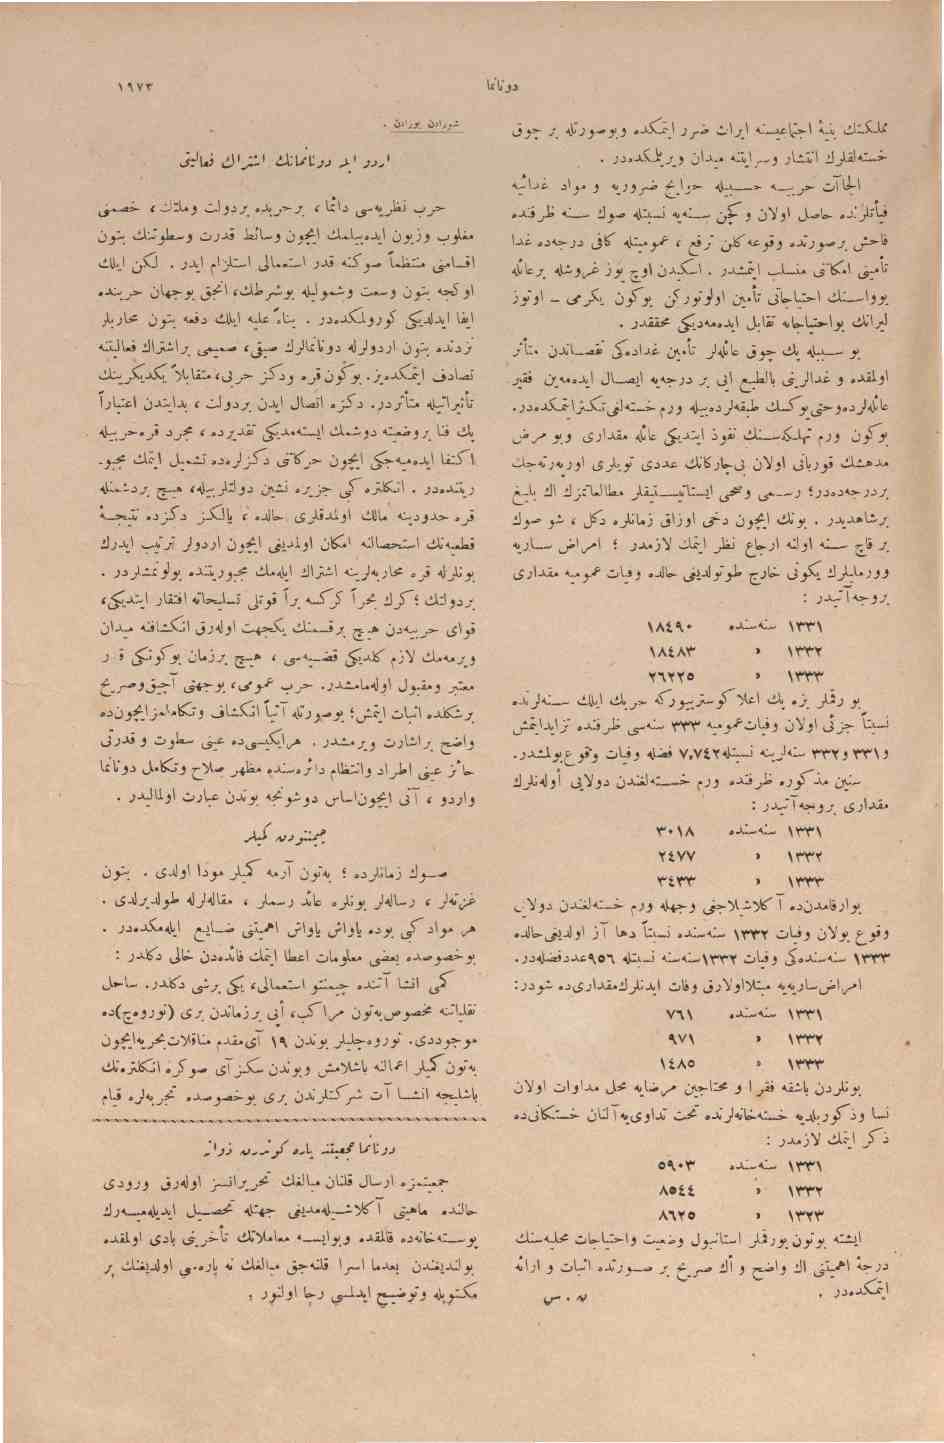 دوناتما
١٩٧٣
مملكتك بنيهٔ اجتماعيسنه ايراث ضرر ايتمكده وبوصورتله بر چوق
خسته‌لقلرك انتشار وسرايتنه ميدان ويرلمكده‌در .
الجاآت حربيه حسبيله حوايج ضروريه و مواد غدائيه
فيأتلرنده حاصل اولان و كچن سنه‌يه نسبتله صوك سنه ظرفنده
فاحش برصورتده وقوعه كلن ترفع ، عموميتله كافى درجه‌ده غدا
تأمينى امكاننى منسلب ايتمشدر . اسكيدن اوچ يوز غروشله برعائله
يوواسنك احتياجاتى تأمين اولونوركن بوكون يكرمى ــ اوتوز
ليرانك بواحتياجاته تقابل ايده‌مه‌ديكى محققدر .
بو سببله پك چوق عائله‌لر تأمين غداده‌كى نقصاندن متأثر
اولمقده و غدالرينى بالطبع ايى بر درجه‌يه ايصال ايده‌مه‌ين فقير
عائله‌لرده‌وحتى‌يوكسك طبقه‌لرده‌بيله ورم خسته‌لغى‌تكثرايتمكده‌در.
بوكون ورم تهلكه‌سنك نفوذ ايتديكى عائله مقدارى وبو مرض
مدهشك قوربانى اولان بى‌چارکانك عددى تويلرى اورپرته‌جك
بردرجه‌ده‌در؛ رسمى وصحى ايستاتيستيقلر مطالعاتمزك اك بليغ
برشاهديدر . بونك ايچون دخى اوزاق زمانلره دكل ، شو صوك
بر قاچ سنه اولنه ارجاع نظر ايتمك لازمدر ؛ امراض ساريه
وورمليلرك يكونى خارج طوتولديغى حالده وفيات عموميه مقدارى
بروجه‌آتيدر :
١٣٣١ سنه‌سنده ١٨٤٩٠
١٣٣٢ » ١٨٤٨٣
١٣٣٣ » ٢٦٢٢٥
بو رقملر بزه پك اعلا كوستريیوركه حربك ايلك سنه‌لرنده
نسبتاً جزئى اولان وفيات‌عموميه ٣٣٣ سنه‌سى ظرفنده تزايدايتمش
و٣٣١ و٣٣٢ سنه‌لرينه نسبتله٧,٧٤٢ فضله وفيات وقوع‌بولمشدر.
سنين مذكوره ظرفنده ورم خسته‌لغندن دولايى أوله‌نلرك
مقدارى بروجه‌آتيدر :
١٣٣١ سنه‌سنده ٣٠١٨
١٣٣٢ » ٢٤٧٧
١٣٣٣ » ٣٤٣٣
بوارقامدن‌ده آكلاشيلاجغى وجهله ورم خسته‌لغندن دولايى
وقوع بولان وفيات ١٣٣٢ سنه‌سنده نسبتاً دها آز اولديغى‌حالده
١٣٣٣ سنه‌سنده‌كى وفيات ١٣٣٢سنه‌سنه نسبتله ٩٥٦عددفضله‌در.
امراض‌ساريه‌يه مبتلااولارق وفات ايدنلرك‌مقدارى‌ده شودر:
١٣٣١ سنه‌سنده ٧٦١
١٣٣٢ » ٩٧١
١٣٣٣ » ١٤٨٥
بونلردن باشقه فقرا و محتاجين مرضايه محل مداوات اولان
نسا وذكوربلديه خسته‌خانه‌لرنده تحت تداوى‌يه‌آلنان خستكانى‌ده
ذكر ايتمك لازمدر :
١٣٣١ سنه‌سنده ٥٩٠٣
١٣٣٢ » ٨٥٤٤
١٣٢٣ » ٨٦٢٥
ايشته بوتون‌بورقملر استانبول وضعيت واحتياجات محليه‌سنك
درجهٔ اهميتنى اك واضح و أك صريح بر صورتده اثبات و ارائه
ايتمكده‌در .
ن . س
شورادن بورادن .
اردو ايله دوناتمانك اشتراك فعاليتى
حرب نظريه‌سى دائما ، برحربده بردولت وملتك ، خصمنى
مغلوب وزبون ايده‌بيلمك ايچون وسائط قدرت وسطوتنك بتون
اقسامنى منتظماً صوكنه قدر استعمالى استلزام ايدر . لكن ايلك
اوكجه بتون وسعت وشموليله بوشرطك، انجق بوجهان حربنده
ايفا ايدلديكى كورولمكده‌در . بناءً عليه ايلك دفعه بتون محاربلر
نزدنده بتون اردولرله دوناتمالرك صيقى، صميمى براشتراك فعاليتنه
تصادف ايتمكده‌يز. بوكون قره ودكز حربى،متقابلاً يكديكرينك
تأثيراتيله متأثردر. دكزه اتصال ايدن بردولت ، بدايتدن اعتباراً
پك فنا بروضعيته دوشمك ايسته‌مديكى تقديرده ، مجرد قره‌حربيله
اكتفا ايده‌ميه‌جكى ايچون حركاتنى دكزلره‌ده تشميل ايتمك مجبو-
ريتنده‌در . انكلتره كبى جزيره نشين دولتلربيله، هيچ بردشمنله
قره حدودينه مالك اولمدقلرى حالده ، يالكز دكزده نتيجهٔ
قطعيه‌نك استحصالنه امكان اولمديغى ايچون اردولر ترتيب ايدرك
بونلرله قره محاربه‌لرينه اشتراك ايله‌مك مجبوريتنده بولونمشلردر .
بردولتك ؛ كرك بحراً كركسه براً قوتلى تسليحاته افتقار ايتديكى،
قواى حربيه‌دن هيچ برقسمنك يكجهت اوله‌رق انكشافنه ميدان
ويرمه‌مك لازم كلديكى قضيه‌سى ، هيچ برزمان بوكونكى قدر
معتبر ومقبول اوله‌مامشدر. حرب عمومى، بوجهتى آچيق‌وصريح
برشكلده اثبات ايتمش؛ بوصورتله آتياً انكشاف وتكاملمزايچون‌ده
واضح براشارت ويرمشدر . هرايكيسى‌ده عينى سطوت و قدرتى
حائز عينى اطراد وانتظام دائره‌سنده مظهر صلاح وتكامل دوناتما
واردو ، آتى ايچون‌اساس دوشونجه بوندن عبارت اولماليدر .
چيمنتودن كميلر
صوك زمانلرده ؛ به‌تون آرمه كميلر مودا اولدى . بتون
غزته‌لر ، رساله‌لر بونلره عائد رسملر ، مقاله‌لرله طولديرلدى .
هر مواد كبى بوده ياواش ياواش اهميتنى ضايع ايله‌مكده‌در .
بوخصوصده بعضى معلومات اعطا ايتمك فائده‌دن خالى دكلدر :
كمى انشا آتنده چيمنتو استعمالى، يكى برشى دكلدر. ساحل
نقلياتنه مخصوص‌به‌تون مراكب، أپى برزماندن برى (نوروه‌ج)ده
موجوددى. نوروه‌جليلر بوندن ١٩ آى‌مقدم مناقلات‌بحريه‌ايچون
به‌تون كميلر اعمالنه باشلامش وبوندن سكزآى صوكره انكلتره‌نك
باشليجه انشا آت شركتلرندن برى بوخصوصده تجربه‌لره قيام
دوناتما جمعيتنه پاره كوندرن ذواته
جمعيتمزه ارسال قلنان مبالغك تحريراتسز اوله‌رق ورودى
حالنده ماهيتى آكلاشيله‌مديغى جهتله تحصيل ايديله‌ميه‌رك
پوسته‌خانه‌ده قالمقده وبوايسه معاملاتك تأخرينى بادى اولمقده
بولنديغندن بعدما اسرا قلنه‌جق مبالغك نه پاره‌سى اولديغنك بر
مكتوبله وتوضيح ايدلمسى رجا اولنور .